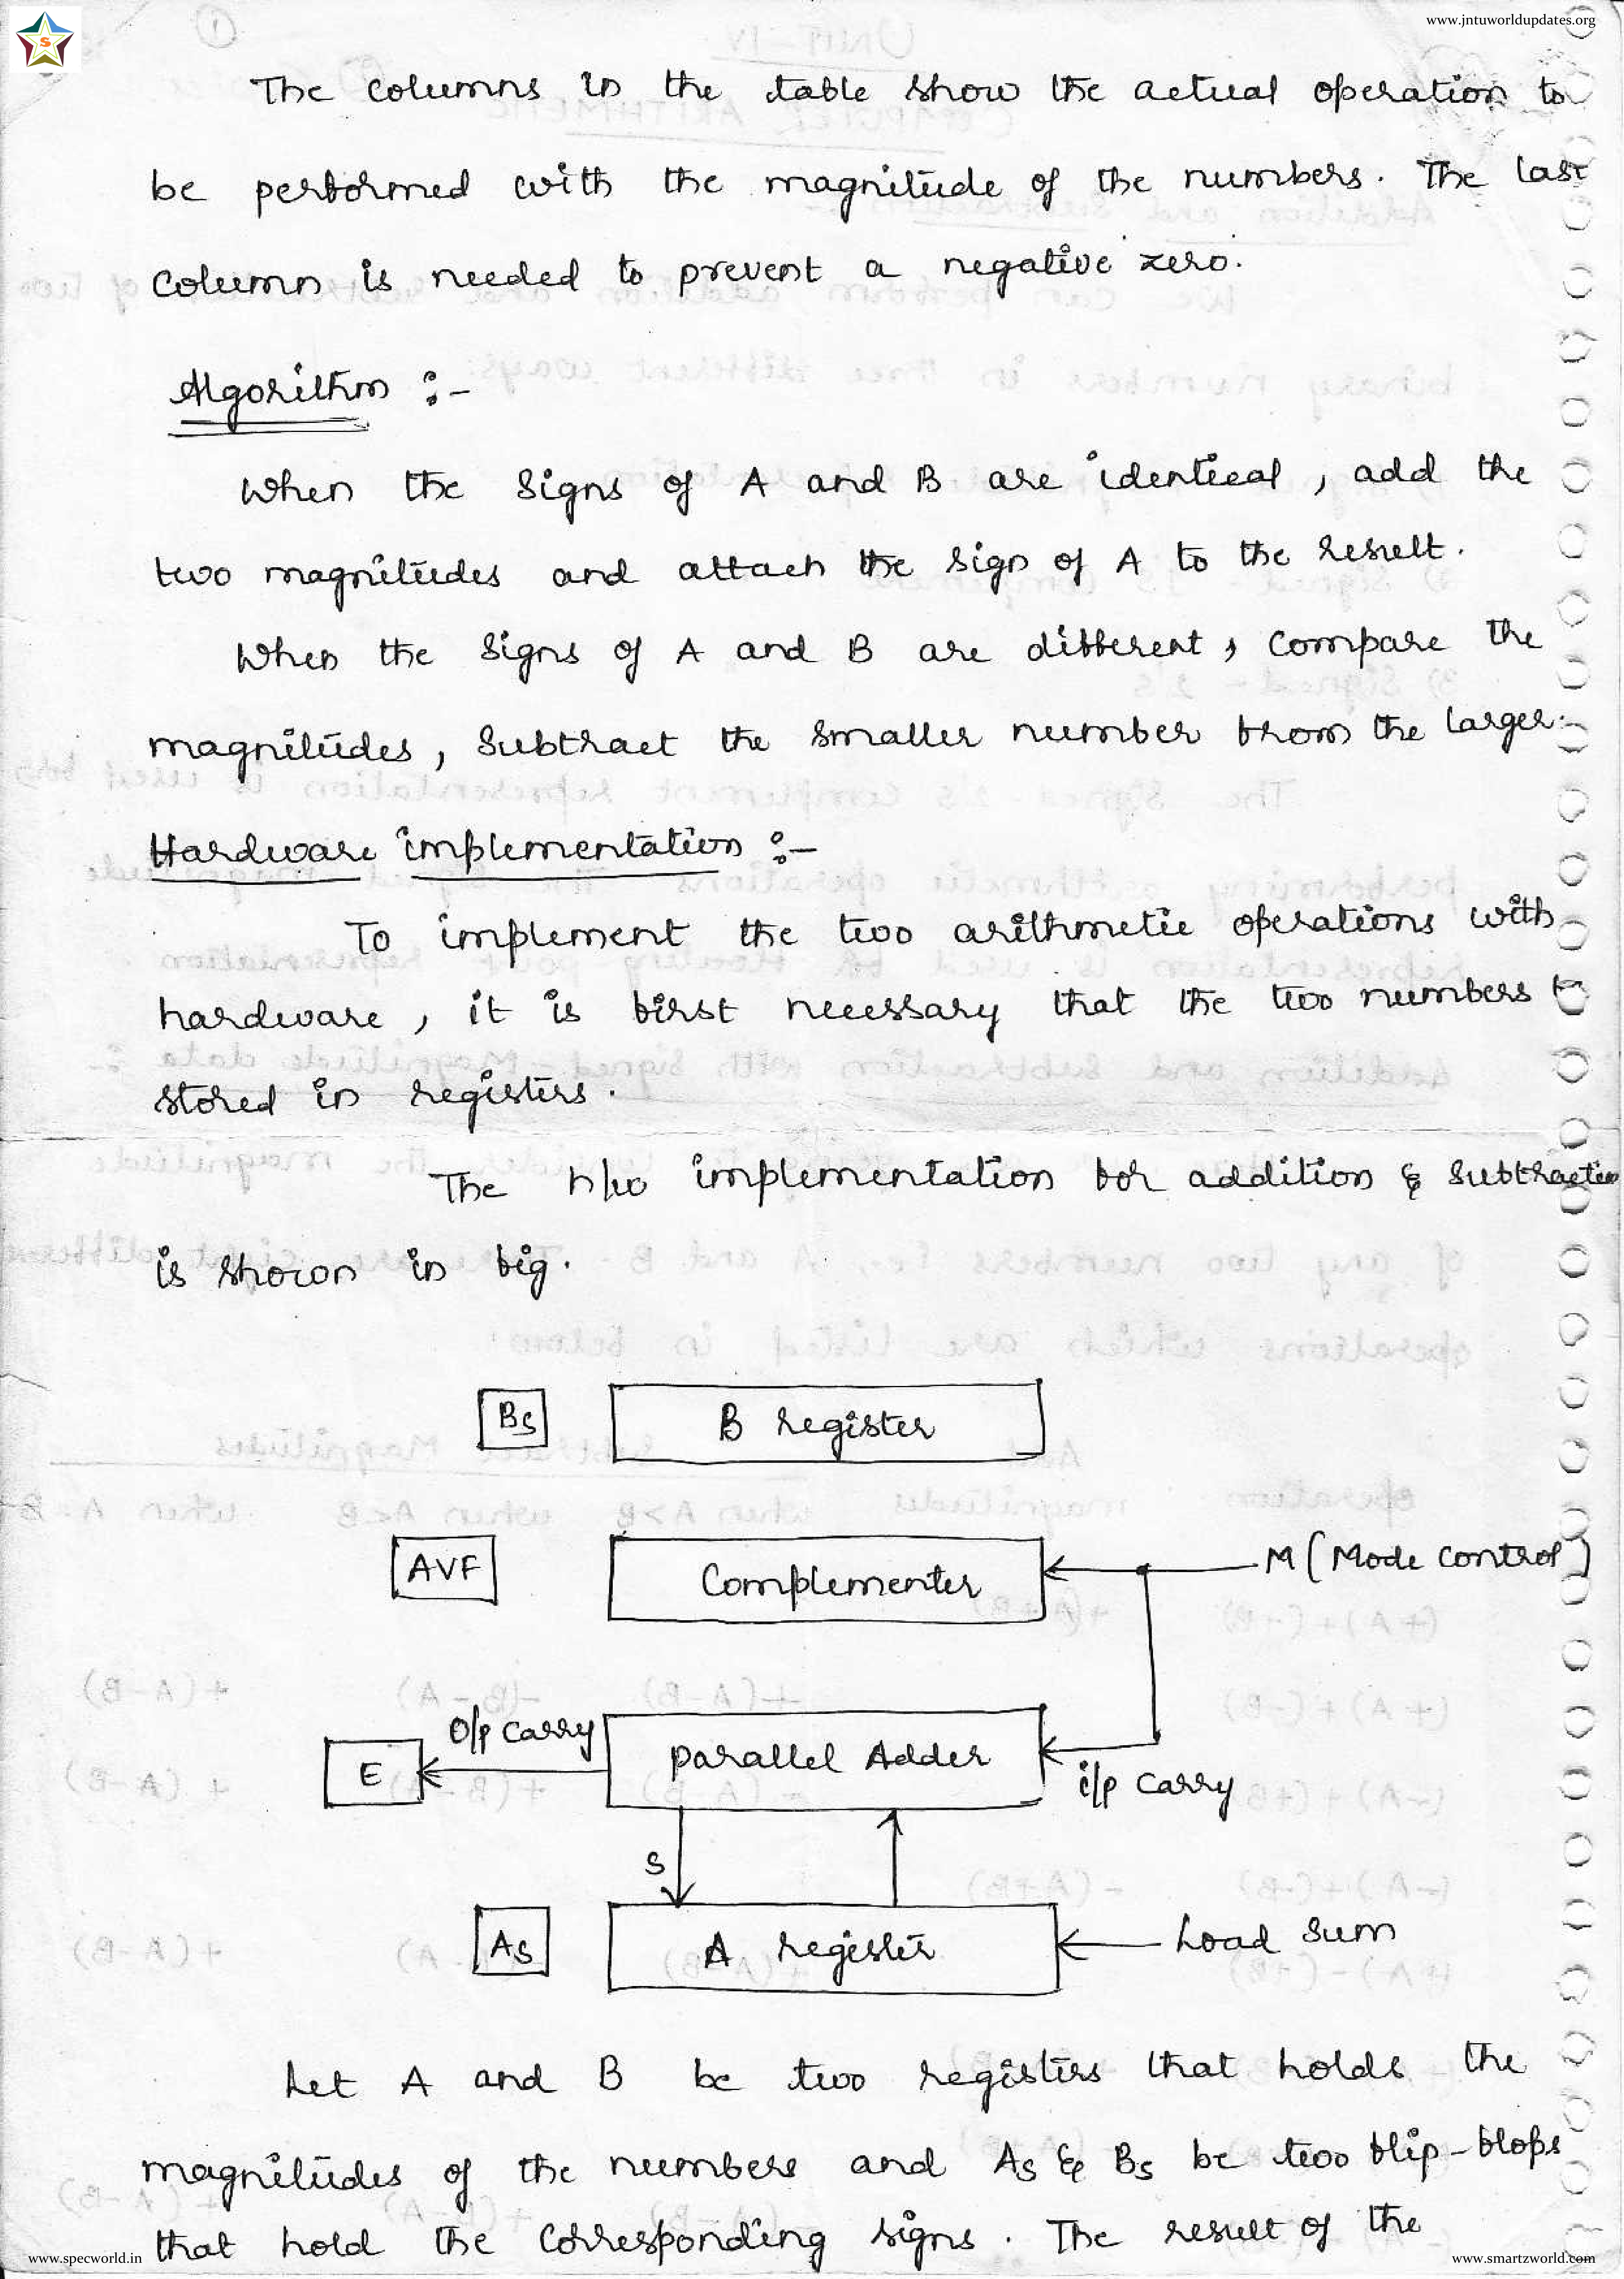 www.jntuworldupdates.org
S
The columns in the table show the actual operation to
be performed with the magnitude of the numbers. The last
column is needed to prevent a negative zero.
Algorithm :-
When the signs of A and B are identical, add the
two magnitudes and attach the sign of A to the result.
When the signs of A and B are different, compare the
magnitudes, subtract the smaller number from the larger.
Hardware implementation :-
To implement the two arithmetic operations with
hardware, it is first necessary that the two numbers
stored in registers.
The h/w implementation for addition & subtraction
is shown in fig.
Bs B register
AVF Complementer M (Mode control)
O/p carry
E parallel Adder
i/p carry
S
As A register Load Sum
Let A and B be two registers that holds the
magnitudes of the numbers and As & Bs be two flip-flops
that hold the corresponding signs. The result of the
www.specworld.in
www.smartzworld.com